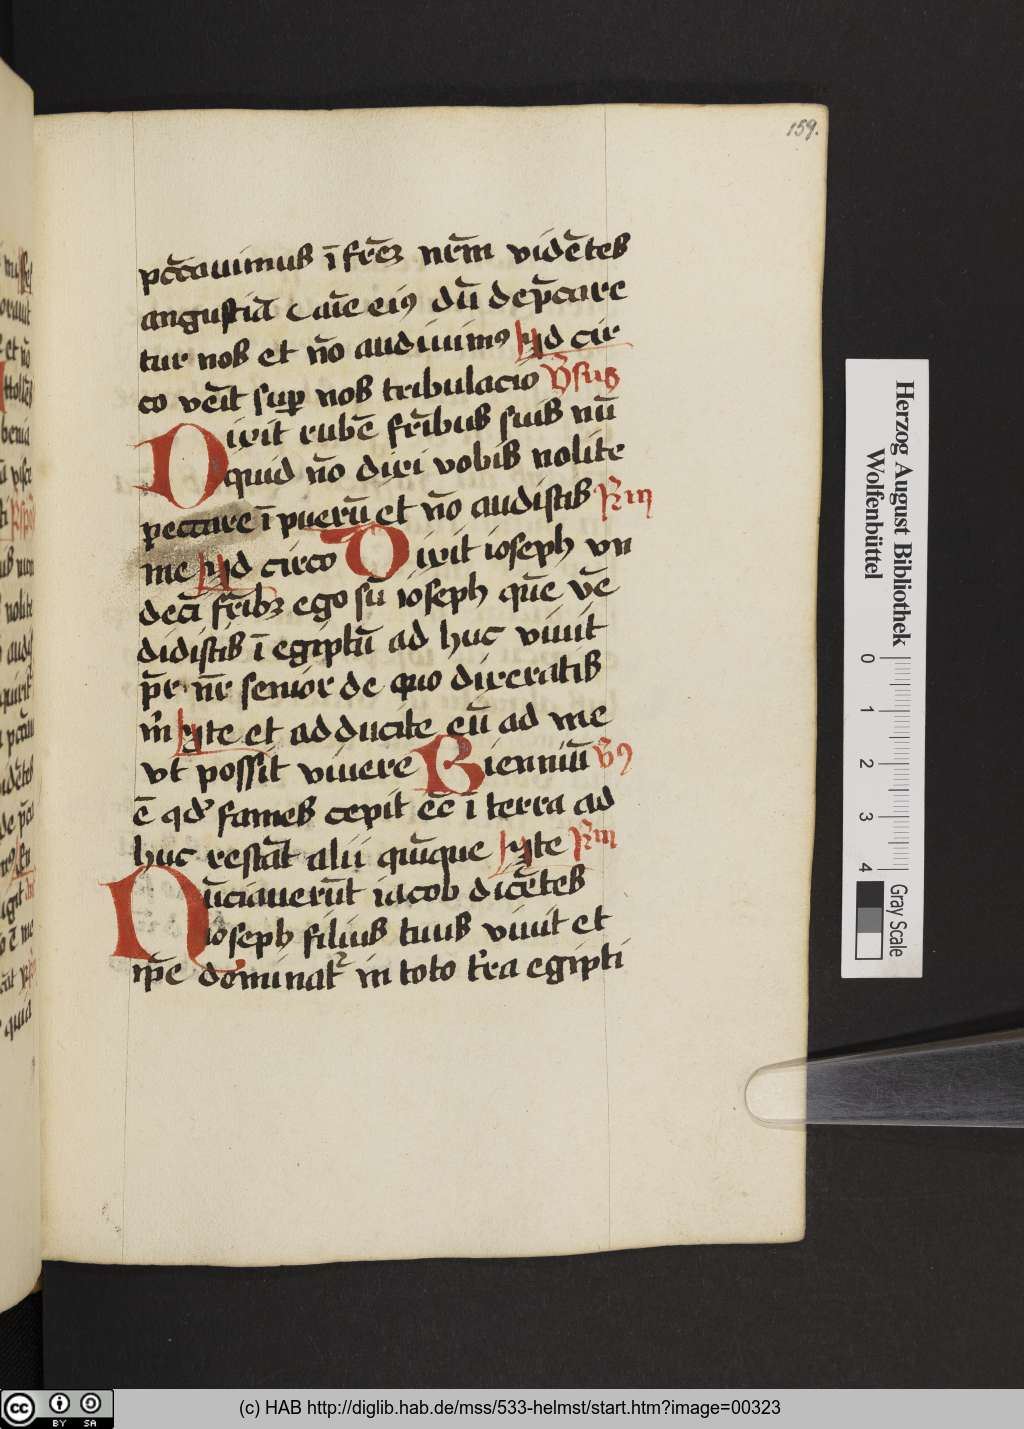 159.
pcc̄auimus ī frēȝ nr̄m vidētes
angustiā aīe eius dū dep̄care
tur nos et nō audiuimus Id cir
co vēit suꝑ nos tribulacio V̄sus
Dixit rubē fr̄ibus suis nū
quid nō dixi vobis nolite
peccare ī puerū et nō audistis R̄m
me Id circo Dixit ioseph vn
deci fr̄ibȝ ego sū ioseph quē vē
didistis ī egiptū ad huc viuit
pr̄ nr̄ senior de quo dixeratis
m̄ Ite et adducite eū ad me
vt possit viuere Bienniū V̄s
ē qd' fames cepit ēe ī terra ad
huc restāt alii quīque Ite R̄m
Nūciauerūt iacob dicētes
ioseph filius tuus viuit et
ip̄e dominat᷑ in toto t'ra egipti
Herzog August Bibliothek
Wolfenbüttel
0 1 2 3 4
Gray Scale
cc BY SA
(c) HAB http://diglib.hab.de/mss/533-helmst/start.htm?image=00323